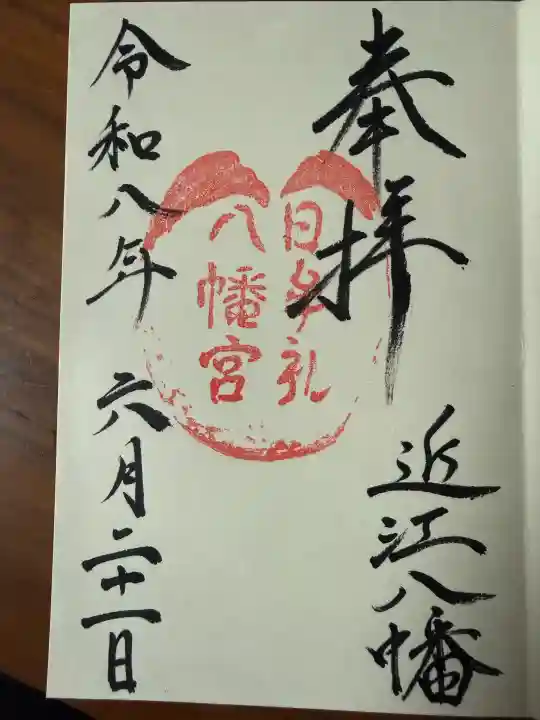 奉拝
近江八幡
日牟礼
八幡宮
令和八年 六月二十一日